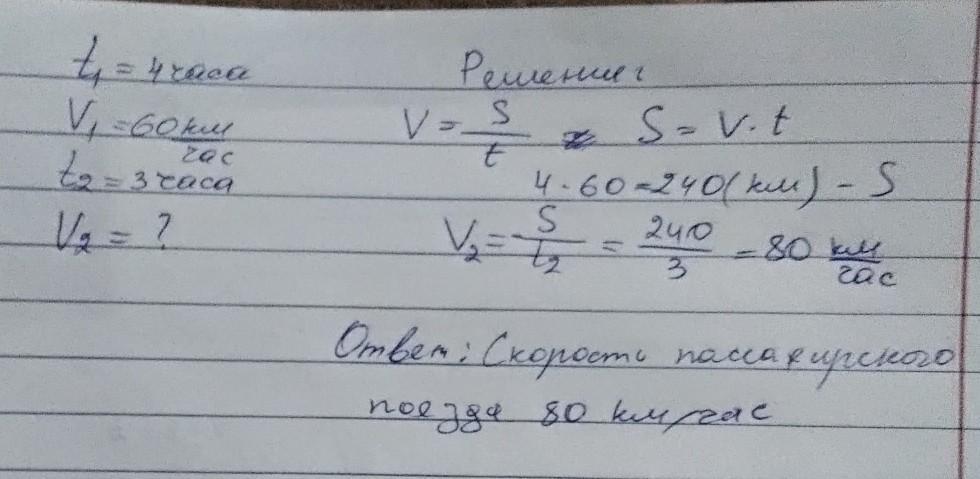 t₁ = 4 часа
V₁ = 60 км/час
t₂ = 3 часа
V₂ = ?
Решение:
V = S/t S = V · t
4 · 60 = 240 (км) – S
V₂ = S/t₂ = 240/3 = 80 км/час
Ответ: Скорость пассажирского
поезда 80 км/час